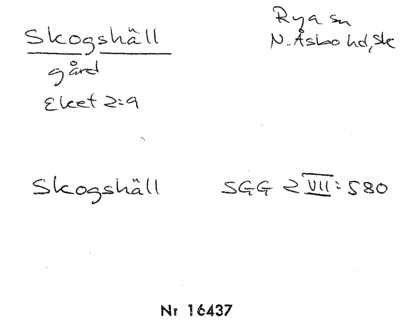 Skogshäll
Rya sn
N. Åsbo hd, Sk
gård
Eket 2:9
Skogshäll SGG 2 VII: 580
Nr 16437